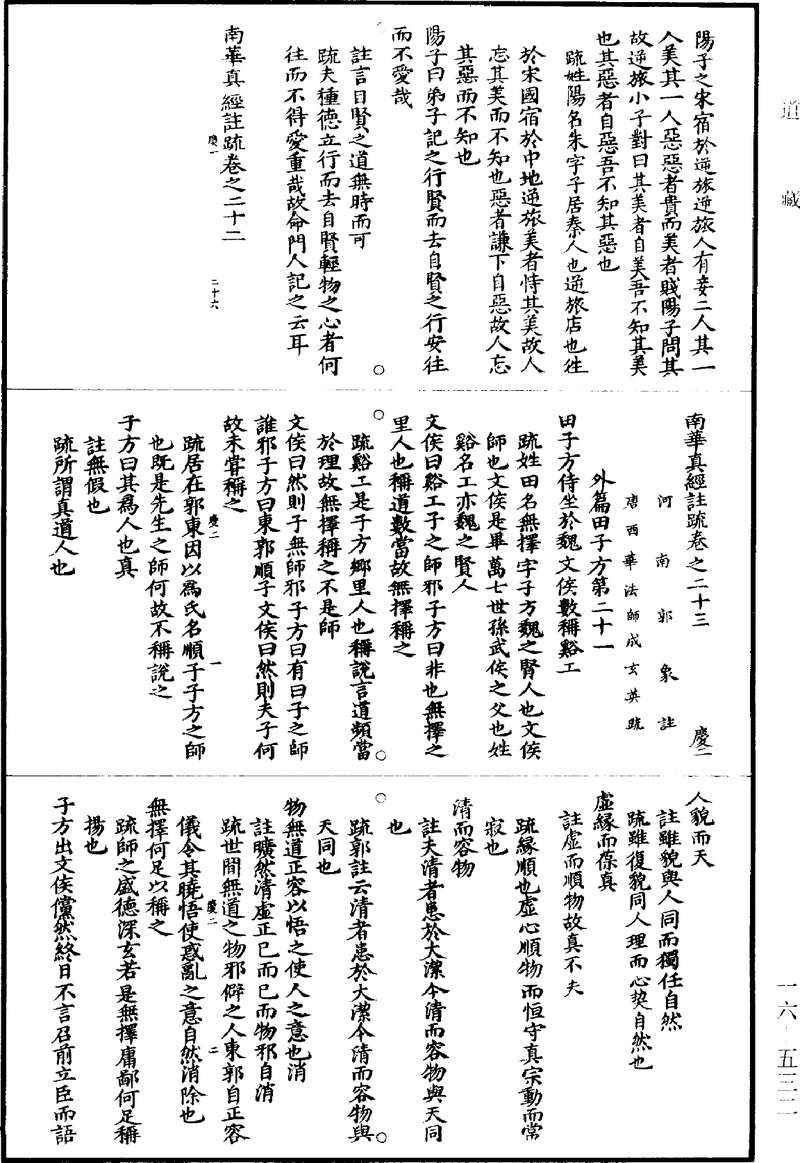 道藏
陽子之宋宿於逆旅逆旅人有妾二人其一
人美其一人惡惡者貴而美者賤陽子問其
故逆旅小子對曰其美者自美吾不知其美
也其惡者自惡吾不知其惡也
疏姓陽名朱字子居秦人也逆旅店也往
於宋國宿於中地逆旅美者恃其美故人
忘其美而不知也惡者謙下自惡故人忘
其惡而不知也
陽子曰弟子記之行賢而去自賢之行安往
而不愛哉
註言自賢之道無時而可
疏夫種德立行而去自賢輕物之心者何
往而不得愛重哉故命門人記之云耳
南華真經註疏卷之二十二
慶一
二十六
南華真經註疏卷之二十三
慶二
河南郭象註
唐西華法師成玄英疏
外篇田子方第二十一
田子方侍坐於魏文侯數稱谿工
疏姓田名無擇字子方魏之賢人也文侯
師也文侯是畢萬七世孫武侯之父也姓
谿名工亦魏之賢人
文侯曰谿工子之師邪子方曰非也無擇之
里人也稱道數當故無擇稱之
疏谿工是子方鄉里人也稱說言道頻當
於理故無擇稱之不是師
文侯曰然則子無師邪子方曰有曰子之師
誰邪子方曰東郭順子文侯曰然則夫子何
故未嘗稱之
慶二
一
疏居在郭東因以為氏名順子子方之師
也既是先生之師何故不稱說之
子方曰其為人也真
註無假也
疏所謂真道人也
人貌而天
註雖貌與人同而獨任自然
疏雖復貌同人理而心契自然也
虛緣而葆真
註虛而順物故真不失
疏緣順也虛心順物而恒守真宗動而常
寂也
清而容物
註夫清者患於大潔今清而容物與天同
也
疏郭註云清者患於大潔今清而容物與
天同也
物無道正容以悟之使人之意也消
註曠然清虛正己而已而物邪自消
疏世間無道之物邪僻之人東郭自正容
慶二
二
儀令其曉悟使惑亂之意自然消除也
無擇何足以稱之
疏師之盛德深玄若是無擇庸鄙何足稱
揚也
子方出文侯儻然終日不言召前立臣而語
一六-五三二